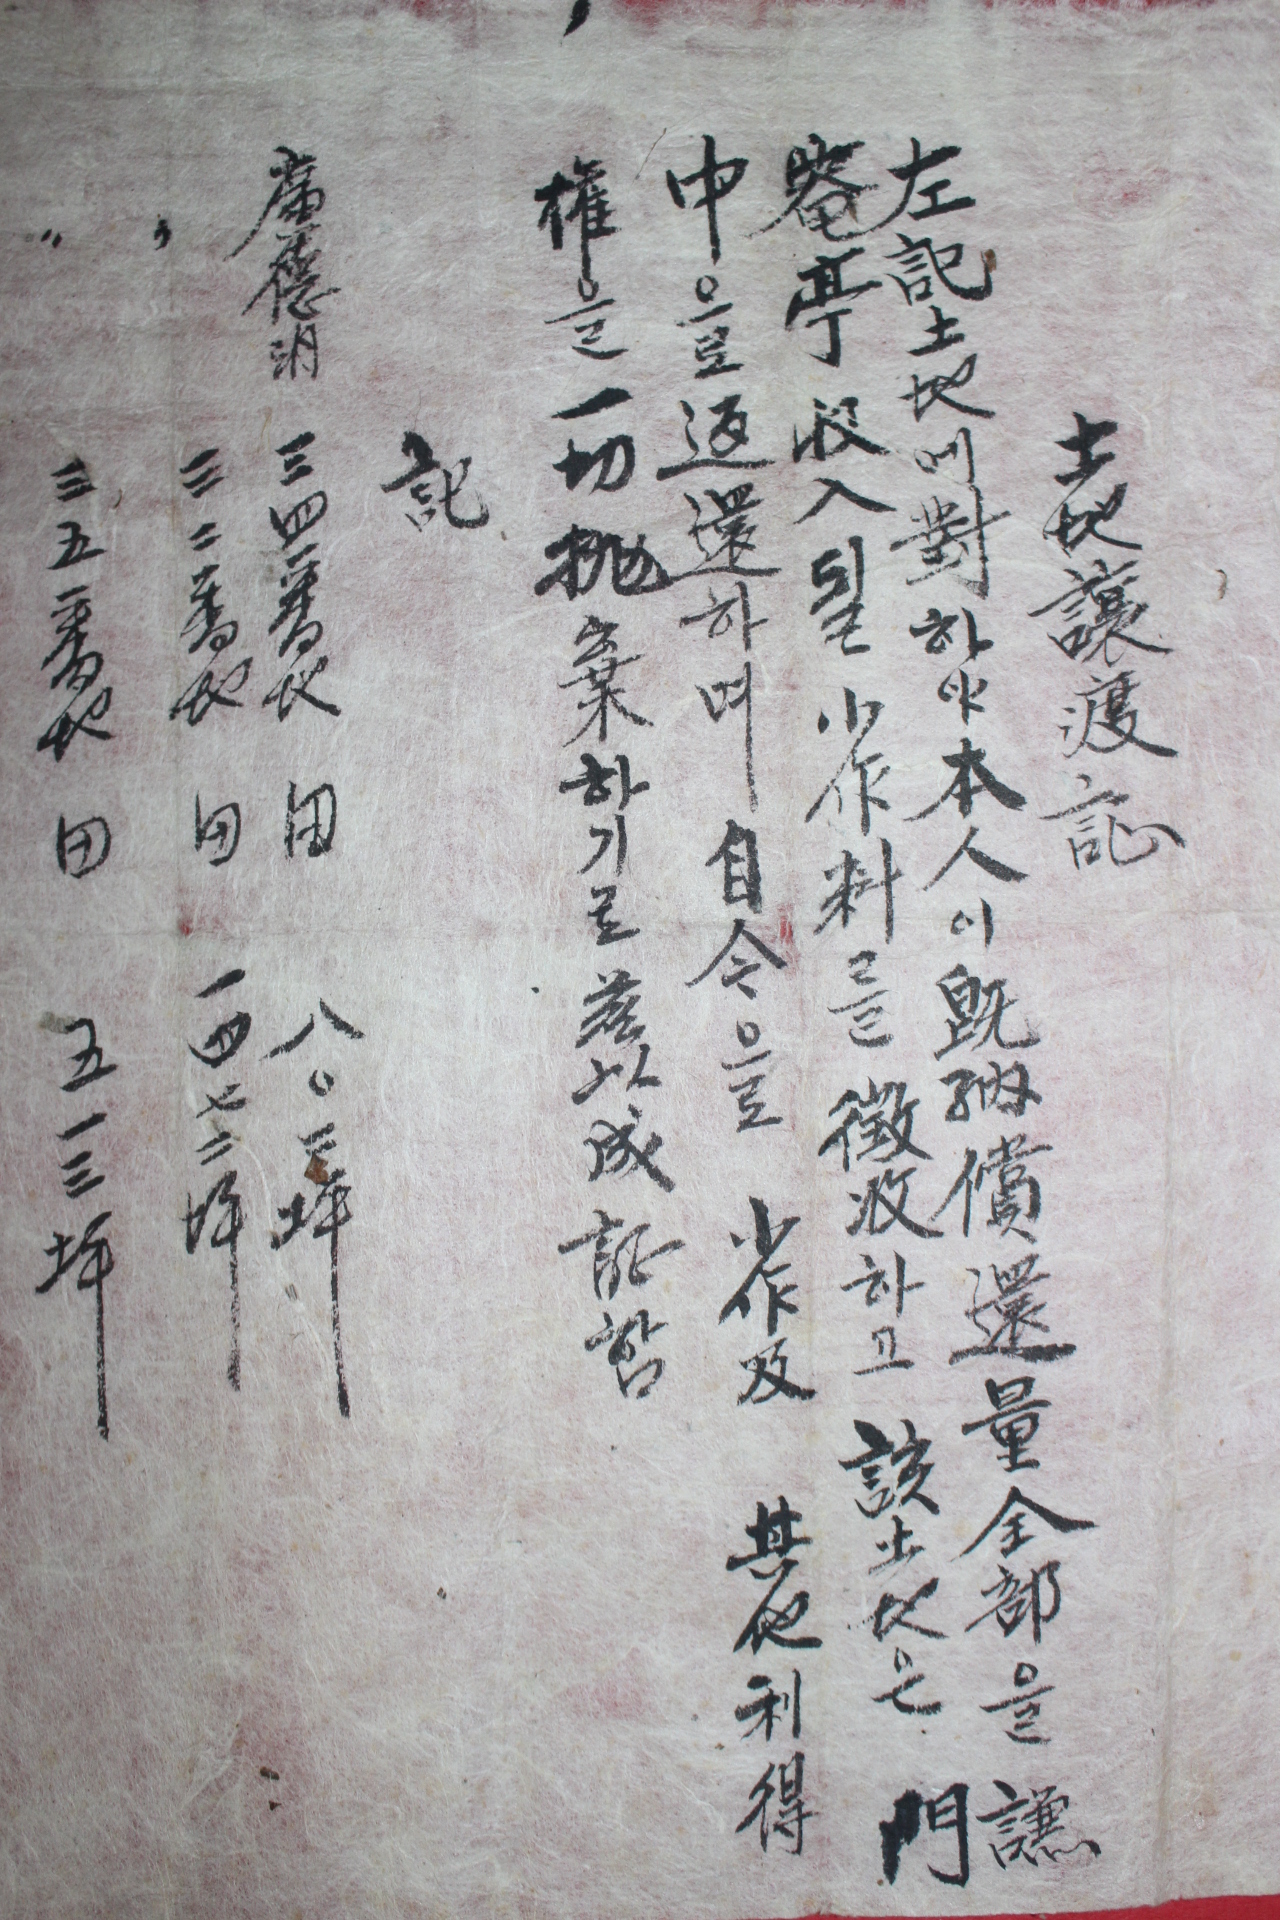 土地讓渡証
左記土地에對하야本人이旣納償還量全部을謙
菴亭收入될小作料를徵收하고該土地은門
中으로返還하며自今으로小作及其他利得
權을一切抛棄하기로玆以成証함
記
德明 三四一番地 田 八〇二坪
〃 三二一番地 田 一四七二坪
〃 三五一番地 田 五一三坪